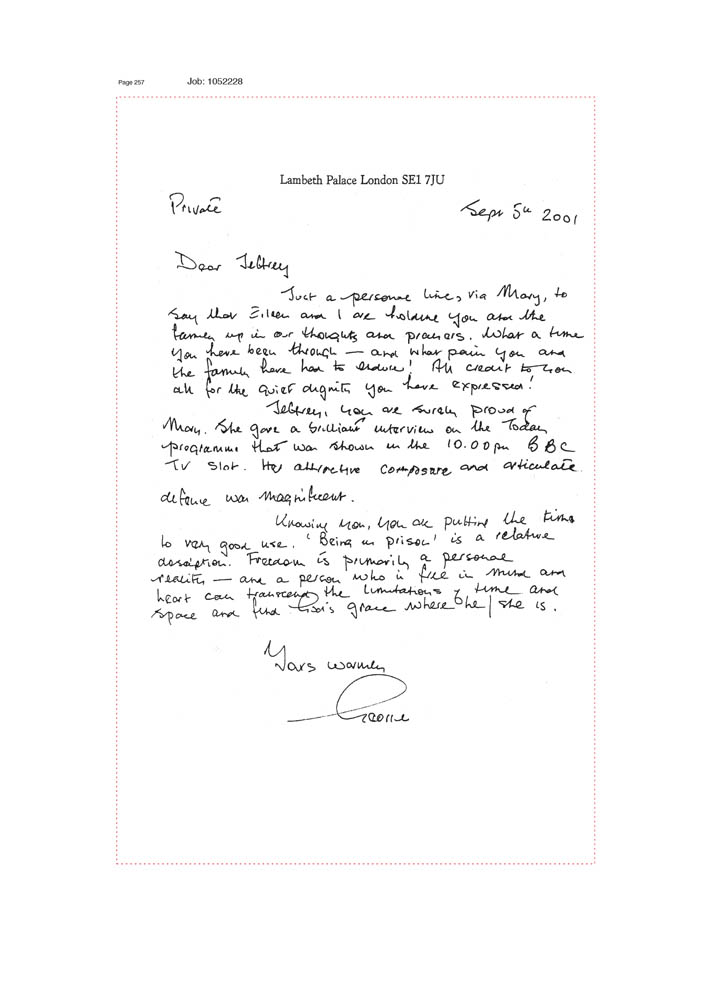 Page 257
Job: 1052228
Lambeth Palace London SE1 7JU
Private
Sept 5th 2001
Dear Jeffrey
Just a personal line, via Mary, to
say that Eileen and I are holding you and the
family up in our thoughts and prayers. What a time
you have been through — and what pain you and
the family have had to endure! All credit to you
all for the quiet dignity you have expressed!
Jeffrey, you are surely proud of
Mary. She gave a brilliant interview on the Today
programme that was shown in the 10.00pm BBC
TV slot. Her attractive composure and articulate
defence was magnificent.
Knowing you, you are putting the time
to very good use. 'Being in prison' is a relative
description. Freedom is primarily a personal
reality — and a person who is free in mind and
heart can transcend the limitations of time and
space and find God's grace where he/she is.
Yours warmly
George